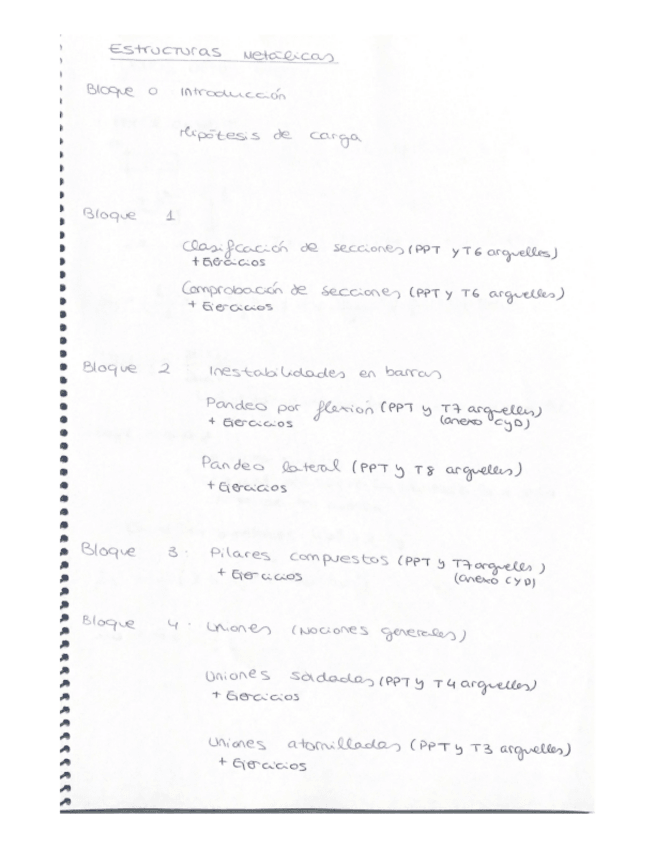 Estructuras Metálicas
Bloque 0 Introducción
Hipótesis de carga
Bloque 1
Clasificación de secciones (PPT y T6 arguelles)
+ Ejercicios
Comprobación de secciones (PPT y T6 arguelles)
+ Ejercicios
Bloque 2 Inestabilidades en barras
Pandeo por flexión (PPT y T7 arguelles)
+ Ejercicios (anexo C y D)
Pandeo lateral (PPT y T8 arguelles)
+ Ejercicios
Bloque 3. Pilares compuestos (PPT y T7 arguelles)
+ Ejercicios (anexo C y D)
Bloque 4. Uniones (Nociones generales)
Uniones soldadas (PPT y T4 arguelles)
+ Ejercicios
Uniones atornilladas (PPT y T3 arguelles)
+ Ejercicios